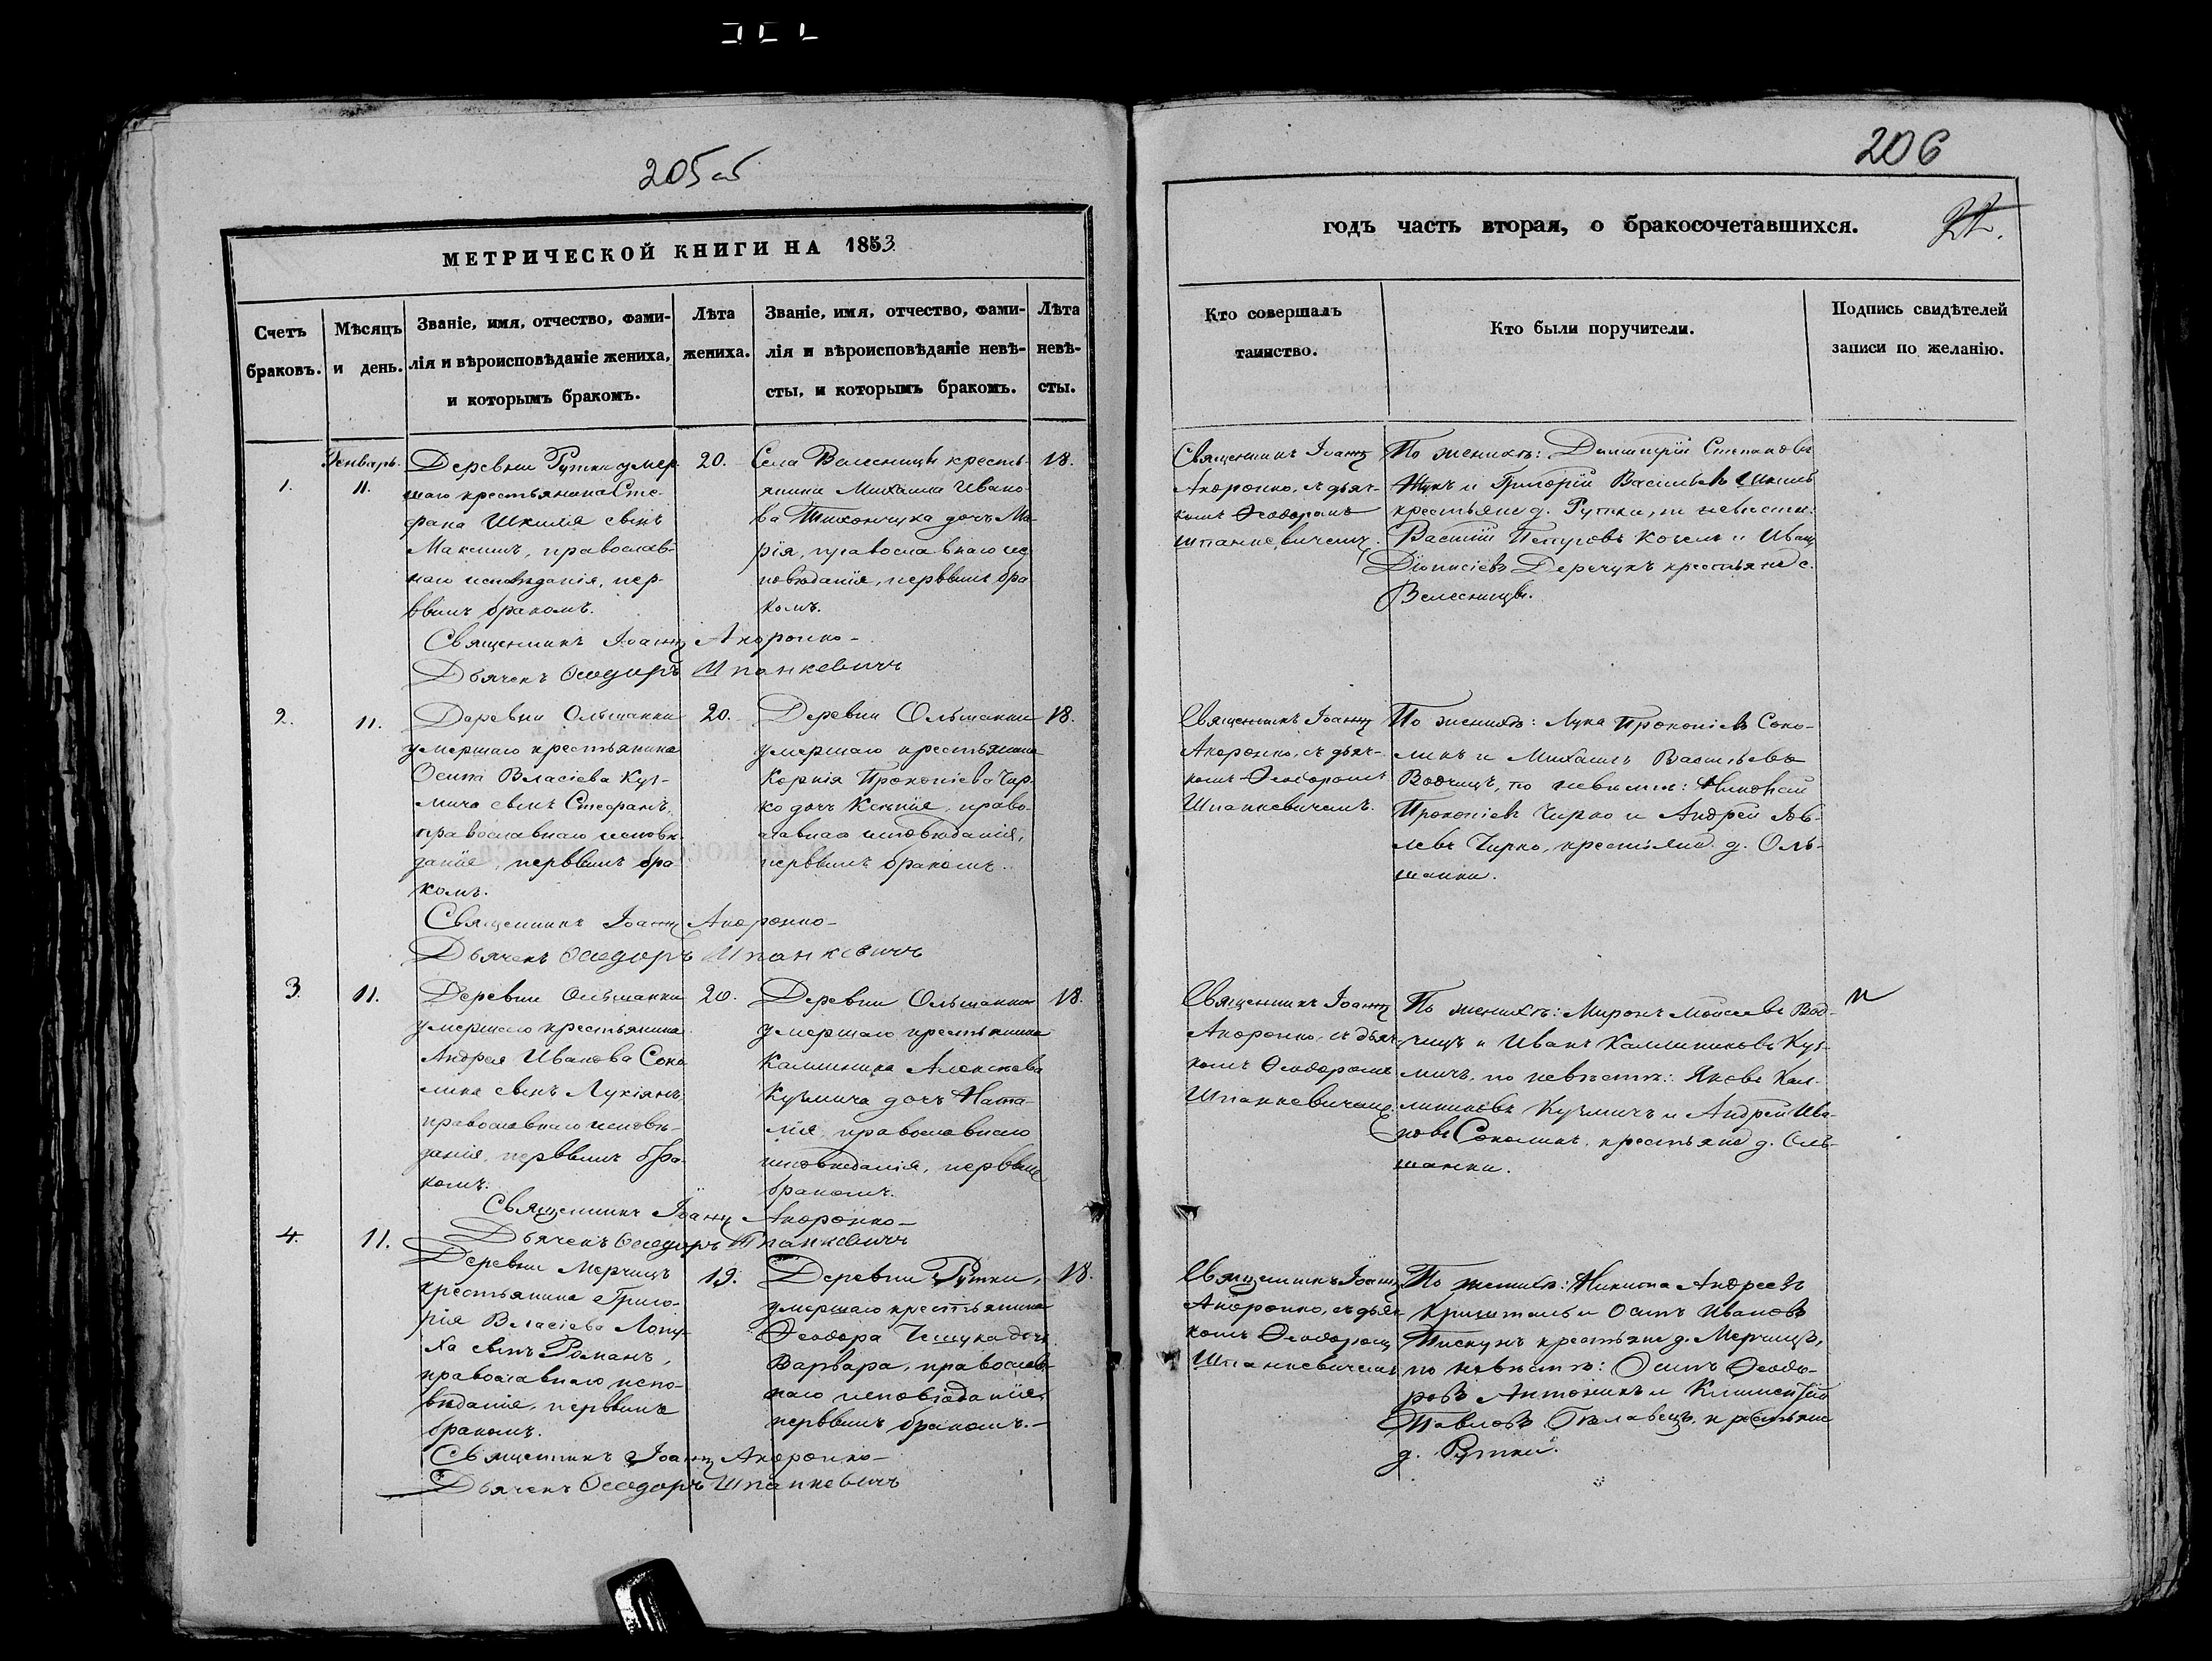 205 об
206
22.
МЕТРИЧЕСКОЙ КНИГИ НА 1853
годъ часть вторая, о бракосочетавшихся.
Счетъ браковъ.
Мѣсяцъ и день.
Званіе, имя, отчество, фами-
лія и вѣроисповѣданіе жениха,
и которымъ бракомъ.
Лѣта
жениха.
Званіе, имя, отчество, фами-
лія и вѣроисповѣданіе невѣ-
сты, и которымъ бракомъ.
Лѣта
невѣ-
сты.
Кто совершалъ
таинство.
Кто были поручители.
Подпись свидѣтелей
записи по желанію.
1.
Генварь.
11.
Деревни Рутки умер
шаго крестьянина Сте-
фана Шкиля сынъ
Максимъ, православ-
наго исповѣданія, пер-
вымъ бракомъ.
20.
Села Велесницы кресть-
янина Михаила Ивано-
ва Тихончука дочь Ма-
рія, православнаго ис
повѣданія, первымъ бра
комъ.
18.
Священникъ Іоаннъ
Андронко, съ дьяч-
комъ Ѳеодоромъ
Шпанкевичемъ.
По женихѣ: Димитрій Степановъ
Жукъ и Григорій Васильевъ Шкиль
крестьяне д. Рутки, по невѣсти:
Василій Петровъ Когель и Иванъ
Діонисіевъ Деречукъ крестьяне с.
Велесницы.
Священникъ Іоаннъ Андронко
Дьячекъ Ѳеодоръ Шпанкевичъ
2.
11.
Деревни Ольшанки
умершаго крестьянина
Осипа Власіева Куз-
мича сынъ Стефанъ,
православнаго исповѣ-
данія, первымъ бра
комъ.
20.
Деревни Ольшанки
умершаго крестьянина
Корнія Прокопіева Чир-
ко дочь Ксенія, право-
славнаго исповѣданія,
первымъ бракомъ.
18.
Священникъ Іоаннъ
Андронко, съ дьяч-
комъ Ѳеодоромъ
Шпанкевичемъ.
По женихѣ: Лука Прокопіевъ Соко-
ликъ и Михаилъ Васильевъ
Водчицъ, по невѣсти: Николай
Прокопіевъ Чирко и Андрей Яв-
левъ Чирко, крестьяне д. Оль-
шанки.
Священникъ Іоаннъ Андронко
Дьячекъ Ѳеодоръ Шпанкевичъ
3.
11.
Деревни Ольшанки
умершаго крестьянина
Андрея Иванова Соко
лика сынъ Лукіянъ,
православнаго исповѣ-
данія, первымъ бра-
комъ.
20.
Деревни Ольшанки
умершаго крестьянина
Калиника Алексѣева
Кузмича дочь Ната-
лія, православнаго
исповѣданія, первымъ
бракомъ.
18.
Священникъ Іоаннъ
Андронко, съ дьяч-
комъ Ѳеодоромъ
Шпанкевичемъ.
По женихѣ: Миронъ Моисеевъ Вод-
чицъ и Иванъ Калиниковъ Куз-
мичъ, по невѣстѣ: Яковъ Кал-
линиковъ Кузмичъ и Андрей Ива-
новъ Соколикъ, крестьяне д. Оль-
шанки.
Священникъ Іоаннъ Андронко
Дьячекъ Ѳеодоръ Шпанкевичъ
4.
11.
Деревни Мерчицъ
крестьянина Григо-
рія Власіева Лопу-
ха сынъ Романъ,
православнаго испо-
вѣданія, первымъ
бракомъ.
19.
Деревни Рутки,
умершаго крестьянина
Ѳеодора Чещука дочь
Варвара, православ-
наго исповѣданія,
первымъ бракомъ.
18.
Священникъ Іоаннъ
Андронко, съ дьяч
комъ Ѳеодоромъ
Шпанкевичемъ
По женихѣ: Никита Андреевъ
Криштань и Осипъ Ивановъ
Пискунъ крестьяне д. Мерчицъ,
по невѣстѣ: Осипъ Ѳеодо-
ровъ Антоникъ и Климентій
Павловъ крестьяне
д. Рутки.
Священникъ Іоаннъ Андронко
Дьячекъ Ѳеодоръ Шпанкевичъ